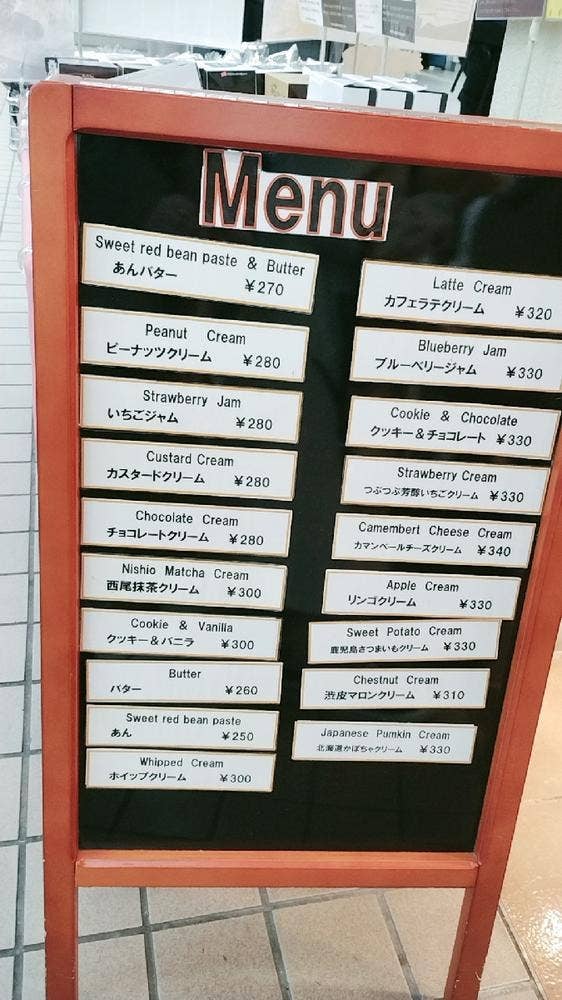 Menu
Sweet red bean paste & Butter
あんバター ¥270
Peanut Cream
ピーナッツクリーム ¥280
Strawberry Jam
いちごジャム ¥280
Custard Cream
カスタードクリーム ¥280
Chocolate Cream
チョコレートクリーム ¥280
Nishio Matcha Cream
西尾抹茶クリーム ¥300
Cookie & Vanilla
クッキー&バニラ ¥300
Butter
バター ¥260
Sweet red bean paste
あん ¥250
Whipped Cream
ホイップクリーム ¥300
Latte Cream
カフェラテクリーム ¥320
Blueberry Jam
ブルーベリージャム ¥330
Cookie & Chocolate
クッキー&チョコレート ¥330
Strawberry Cream
つぶつぶ芳醇いちごクリーム ¥330
Camembert Cheese Cream
カマンベールチーズクリーム ¥340
Apple Cream
リンゴクリーム ¥330
Sweet Potato Cream
鹿児島さつまいもクリーム ¥330
Chestnut Cream
渋皮マロンクリーム ¥310
Japanese Pumkin Cream
北海道かぼちゃクリーム ¥330